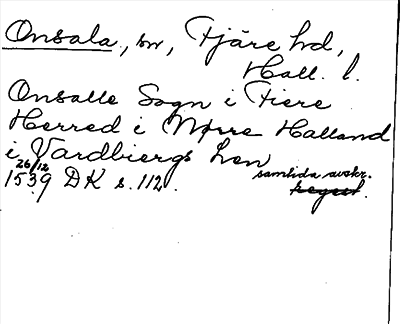 Onsala, sn, Fjäre hd,
Hall. l.
Onsalle Sogn i Fiere
Herred i Nørre Halland
i Vardbiergs Len
26/12 samtida avskr.
1539 DK s. 112.